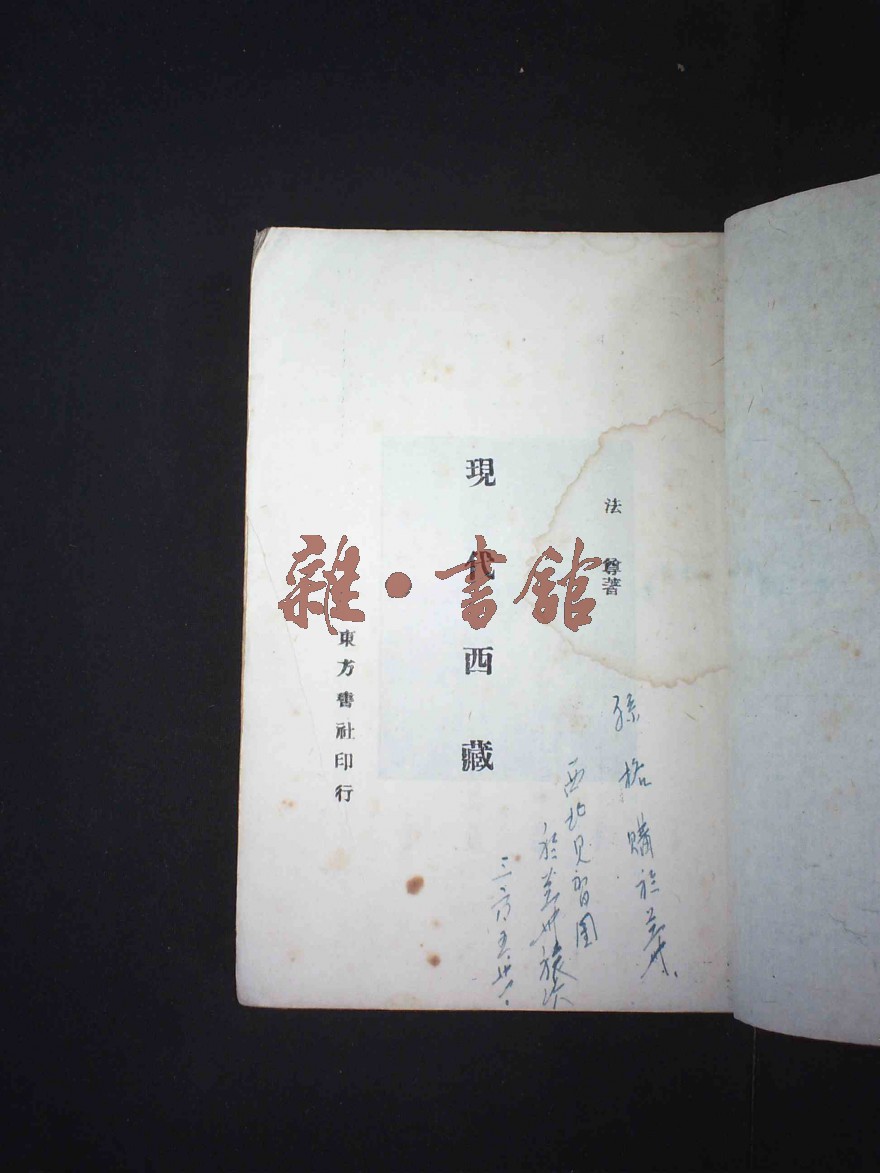 法尊著
現代西藏
東方書社印行
雜·書館
孫格購於兰州.
西北見習團
於兰州旅次
三六、五、廿